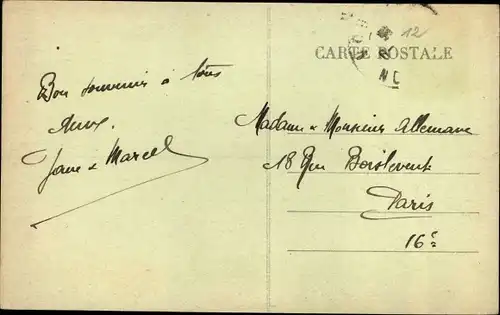 12
CARTE POSTALE
Bon souvenir à tous
deux.
Jane & Marcel
Madame & Monsieur Allemane
18 Rue Boislevent
Paris
16e